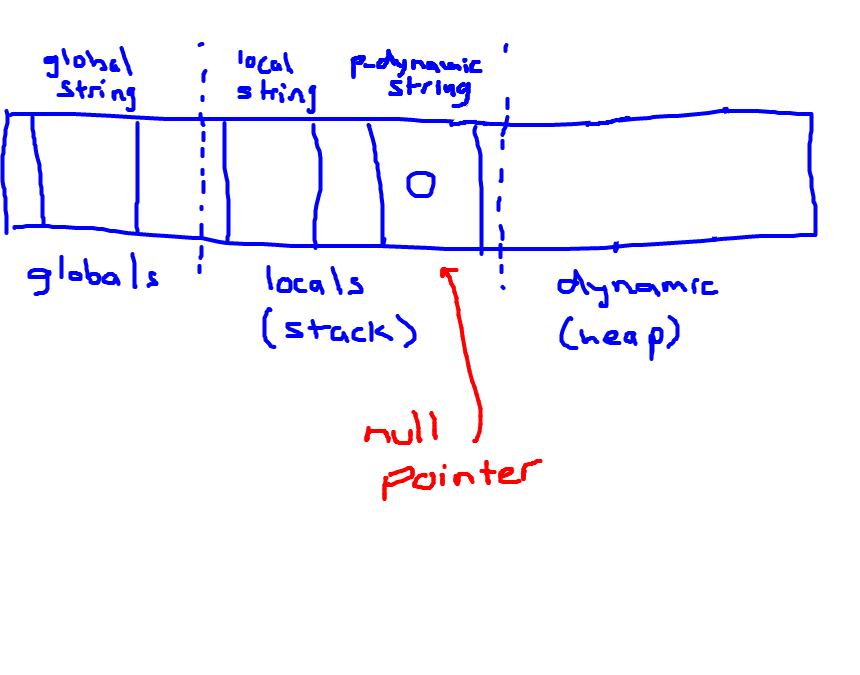 global
string
local
string
p-dynamic
string
0
globals
locals
(stack)
dynamic
(heap)
null
pointer